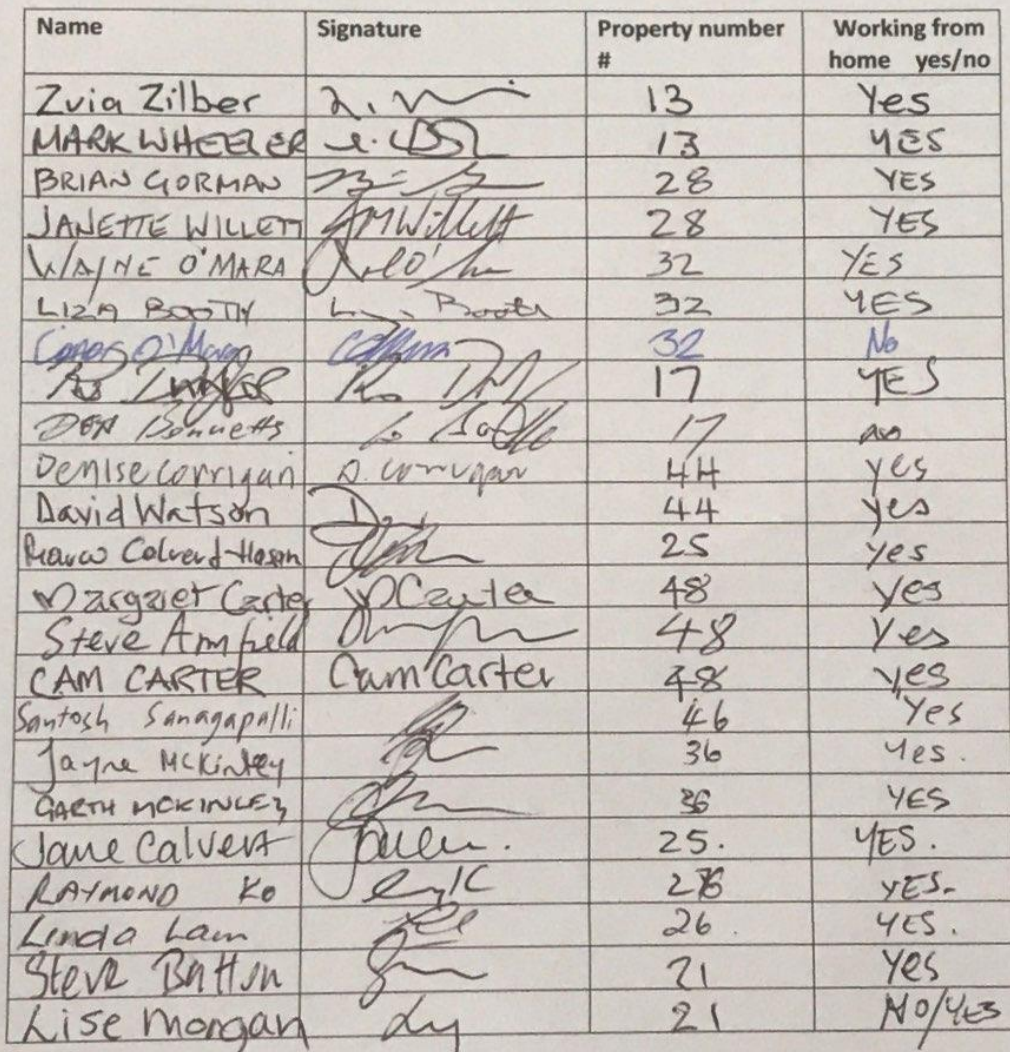 Name Signature Property number # Working from home yes/no
Zvia Zilber 13 Yes
MARK WHEELER 13 YES
BRIAN GORMAN 28 YES
JANETTE WILLETT JMWillett 28 YES
WAYNE O'MARA 32 YES
LIZA BOOTH L. Booth 32 YES
O'Mara 32 No
17 YES
17 no
Denise Corrigan D. Corrigan 44 yes
David Watson 44 yes
Calvert-Hasan 25 yes
Margaret Carter MCarter 48 yes
Steve Armfield 48 Yes
CAM CARTER Cam Carter 48 yes
Santosh Sanagapalli 46 Yes
Jayne McKinley 36 Yes.
GARTH MCKINLEY 36 YES
Jane Calvert 25. YES.
RAYMOND KO 26 YES.
Linda Lam 26. YES.
Steve Button 21 Yes
Lise Morgan 21 NO/YES